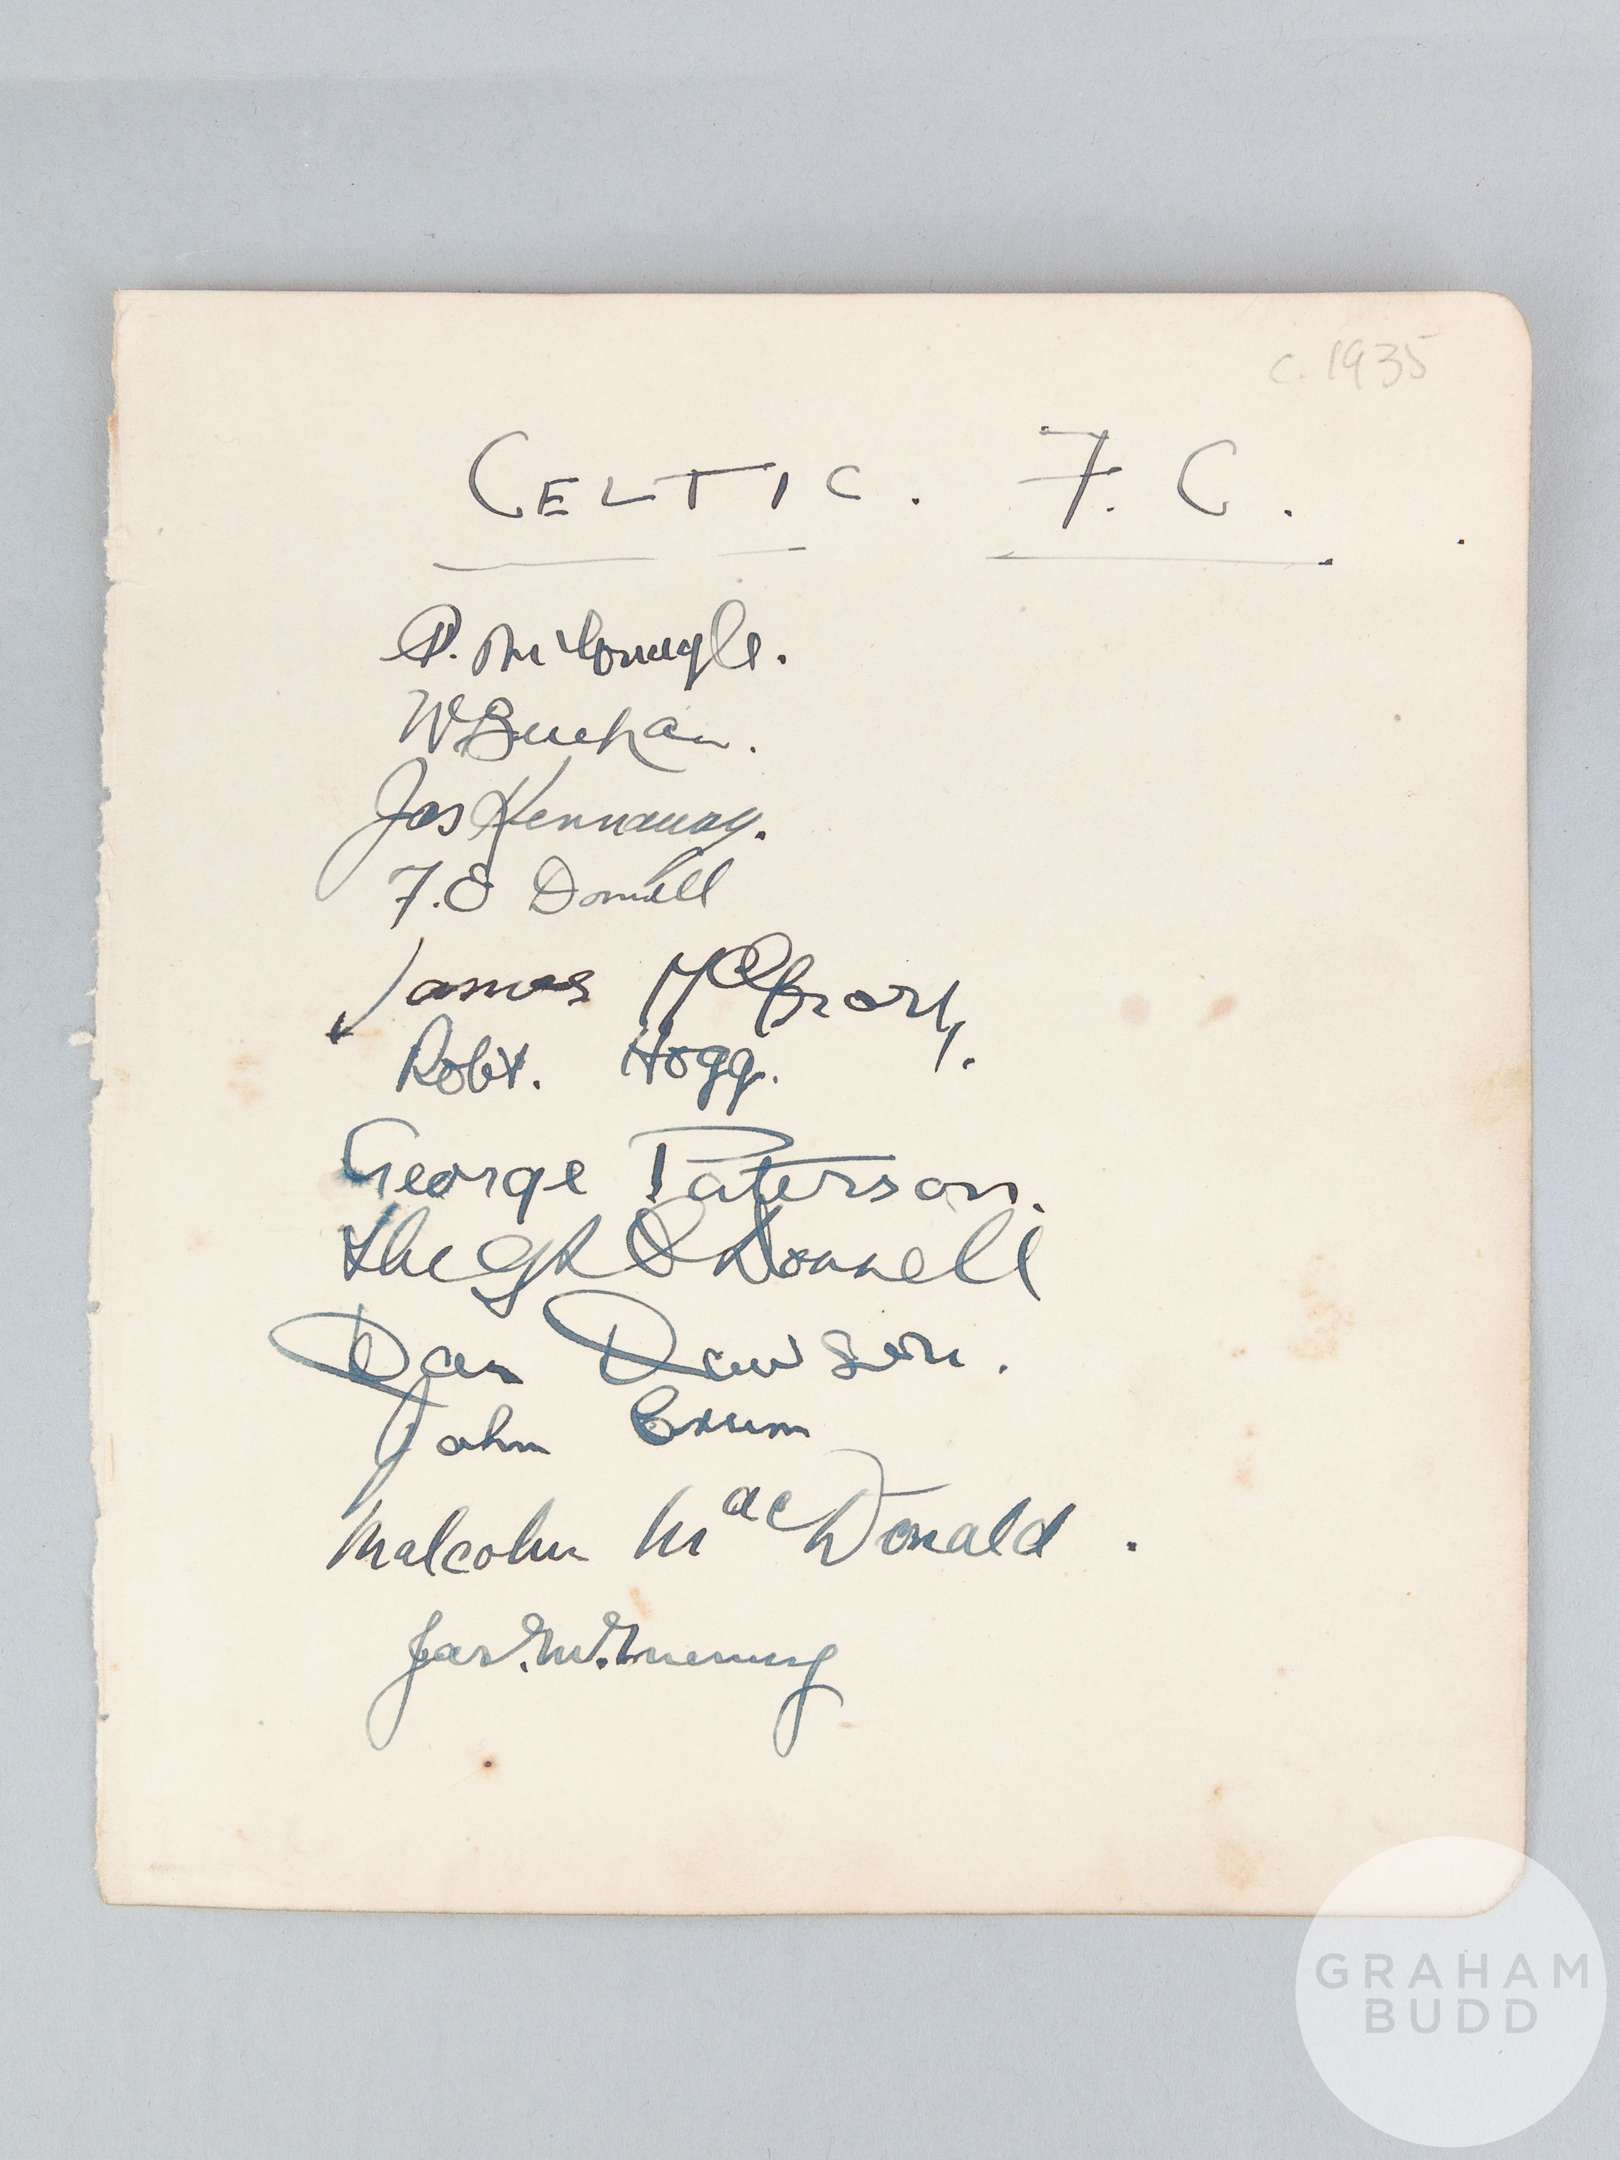 c. 1935
CELTIC. F. C.
P. McGonagle.
W Buchan.
Jas Kennaway.
F. O Donnell
James McGrory.
Robt. Hogg.
George Paterson.
Hugh O Donnell
Dan Dawson.
John Crum
Malcolm MacDonald.
Jas. McMenemy
GRAHAM
BUDD